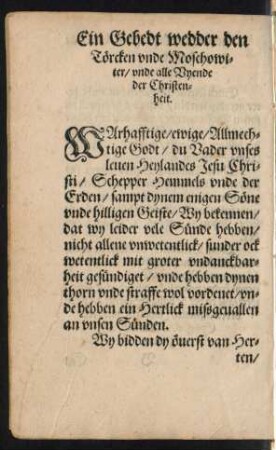 Ein Gebedt wedder den
Törcken vnde Moschowi-
ter/ vnde alle Vyende
der Christen-
heit.
WArhafftige/ewige/Allmech-
tige Godt/ du Vader vnses
leuen Heylandes Jesu Chri-
sti/ Schepper Hemmels vnde der
Erden/ sampt dynem enigen Söne
vnde hilligen Geiste/ Wy bekennen/
dat wy leider vele Sünde hebben/
nicht allene vnwetentlick/ sunder ock
wetentlick mit groter vndanckbar-
heit gesündiget/ vnde hebben dynen
thorn vnde straffe wol vordenet/ vn-
de hebben ein Hertlick missgeuallen
an vnsen Sünden.
Wy bidden dy öuerst van Her-
ten/